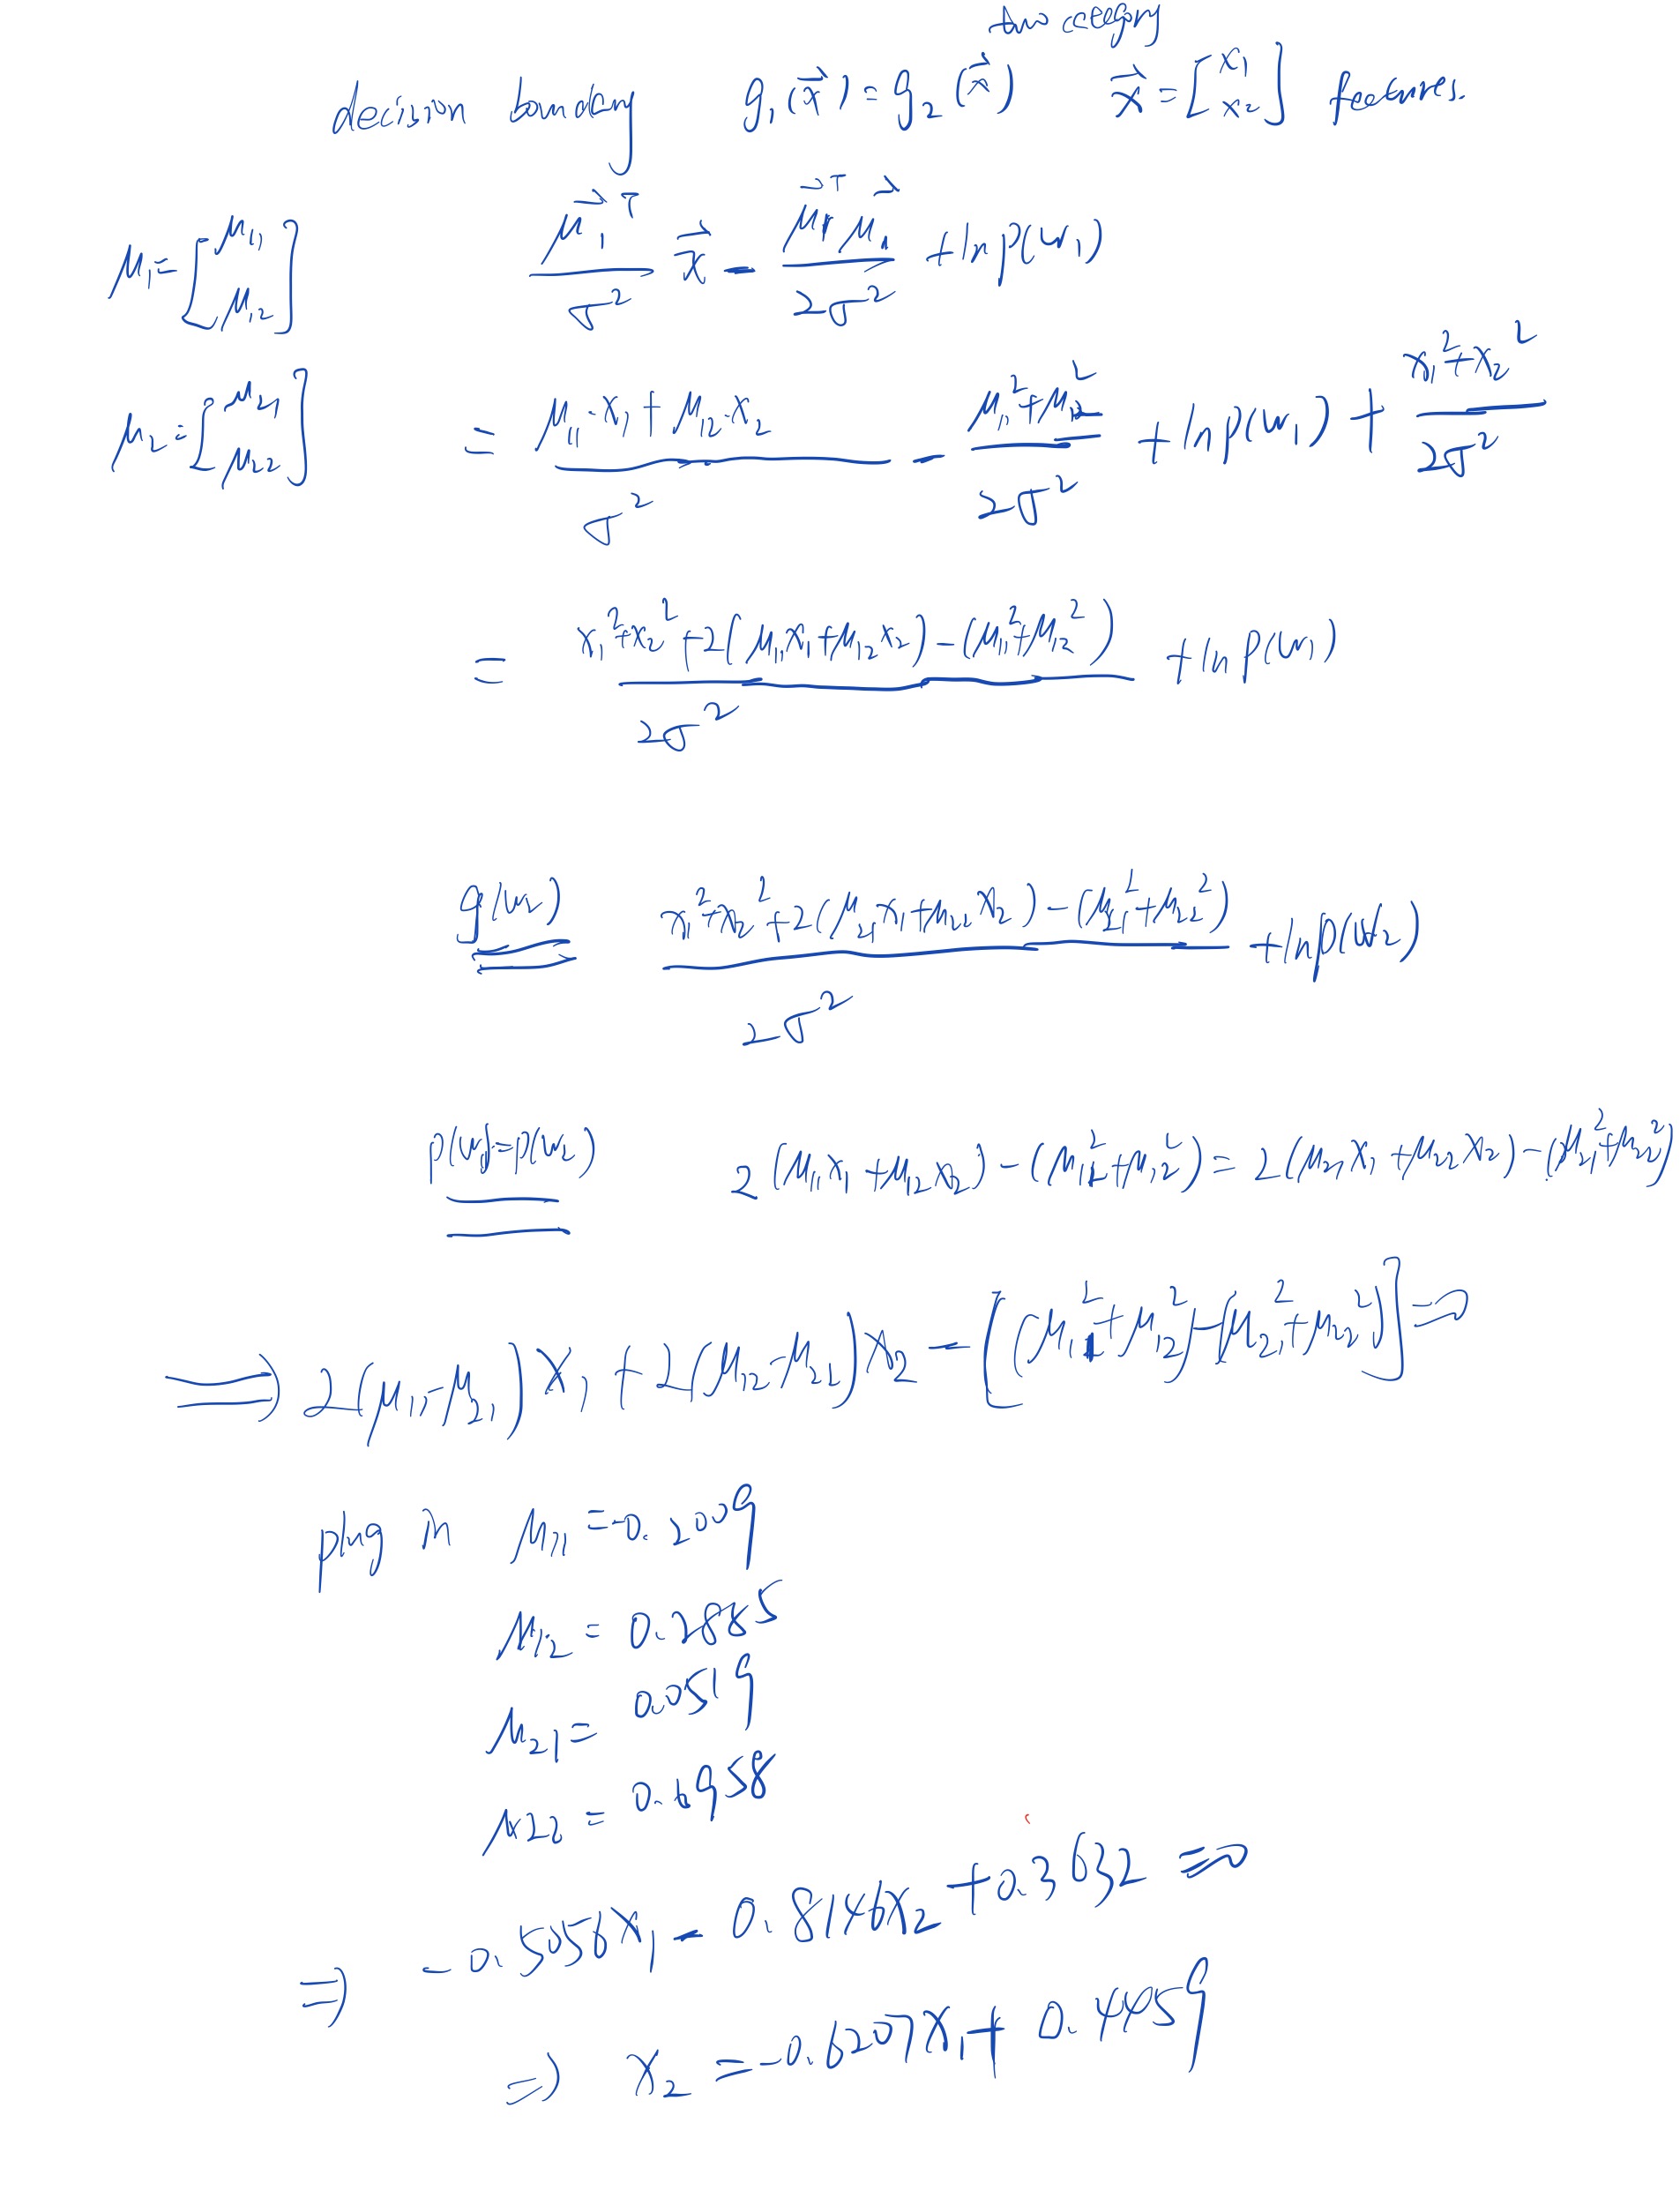 two category
decision boundary g₁(x⃗) = g₂(x⃗) x⃗ = [x₁ x₂] features.
μ₁ = [μ₁₁ μ₁₂] μ⃗₁ᵀ/σ² x⃗ - μ⃗₁ᵀμ⃗₁/2σ² + ln p(w₁)
μ₂ = [μ₂₁ μ₂₂] = (μ₁₁·x₁ + μ₁₂·x₂)/σ² - (μ₁₁² + μ₁₂²)/2σ² + ln p(w₁) + (x₁² + x₂²)/2σ²
= (x₁² + x₂² + 2(μ₁₁x₁ + μ₁₂x₂) - (μ₁₁² + μ₁₂²))/2σ² + ln p(w₁)
g(w₂) (x₁² + x₂² + 2(μ₂₁x₁ + μ₂₂x₂) - (μ₂₁² + μ₂₂²))/2σ² + ln p(w₂)
p(w₁) = p(w₂) 2(μ₁₁x₁ + μ₁₂x₂) - (μ₁₁² + μ₁₂²) = 2(μ₂₁x₁ + μ₂₂x₂) - (μ₂₁² + μ₂₂²)
⇒ 2(μ₁₁ - μ₂₁)x₁ + 2(μ₁₂ - μ₂₂)x₂ - [(μ₁₁² + μ₁₂²) - (μ₂₁² + μ₂₂²)] = 0
plug in μ₁₁ = -0.2009
μ₁₂ = 0.2885
μ₂₁ = 0.0519
μ₂₂ = 0.6958
⇒ -0.5056x₁ - 0.8146x₂ + 0.3632 = 0
⇒ x₂ = -0.6207x₁ + 0.4459